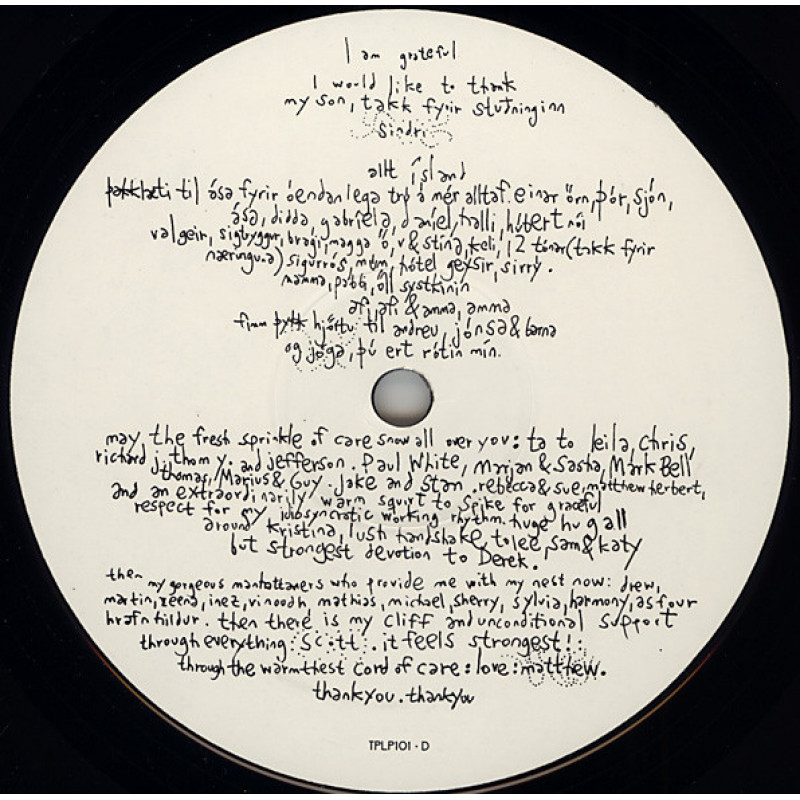 I am grateful
I would like to thank
my son, takk fyrir stuðninginn
Sindri
allt ísland
þakklæti til ása fyrir óendanlega trú á mér alltaf. einar örn, þór, sjón,
ása, didda, gabríela, daníel, halli, húbert nói
valgeir, sigtryggur, bragi, magga ö, v & stína, keli, 12 tónar (takk fyrir
næringuna) sigurrós, múm, hótel geysir, sirrý.
mamma, pabbi, öll systkinin
afi, afi & amma, amma
fimm hjörtu til andreu, jónsa & barna
og jóga, þú ert rótin mín.
may the fresh sprinkle of care snow all over you: ta to leila, chris,
richard j. thom y. and jefferson. Paul White, Marjan & Sasha, Mark Bell
thomas, Marius & Guy. Jake and Stan. rebecca & sue, matthew herbert,
and an extraordinarily warm squirt to Spike for graceful
respect for my idiosyncratic working rhythm. huge hug all
around kristina, lush handshake to lee, sam & katy
but strongest devotion to Derek.
then my gorgeous manhattaners who provide me with my nest now: drew,
martin, zeena, inez, vinoodh, mathias, michael, sherry, sylvia, harmony, as four
hrafnhildur. then there is my cliff and unconditional support
through everything: scott. it feels strongest!
through the warmthest cord of care: love: matthew.
thankyou. thankyou
TPLP101 - D